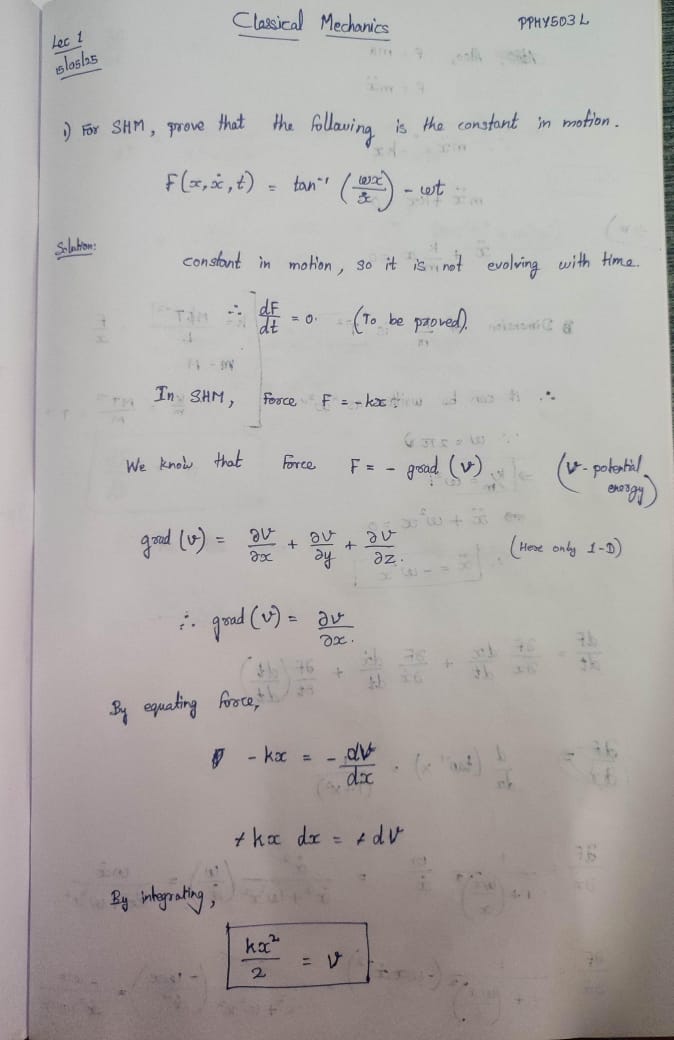 Classical Mechanics
PPHY503L
Lec 1
15/05/25
1) For SHM, prove that the following is the constant in motion.
F(x, ẋ, t) = tan⁻¹ (ωx/ẋ) - ωt
Solution:
constant in motion, so it is not evolving with time.
∴ dF/dt = 0. (To be proved).
In SHM, Force F = -kx
We know that Force F = - grad (v) (v - potential energy)
grad (v) = ∂v/∂x + ∂v/∂y + ∂v/∂z. (Here only 1-D)
∴ grad (v) = ∂v/∂x.
By equating force,
- kx = - dv/dx
+ kx dx = + dv
By integrating,
kx²/2 = v